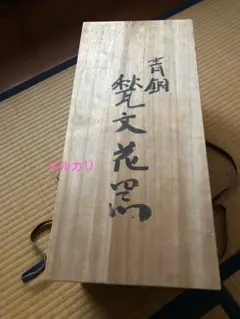 青銅
梵文花器
メルカリ